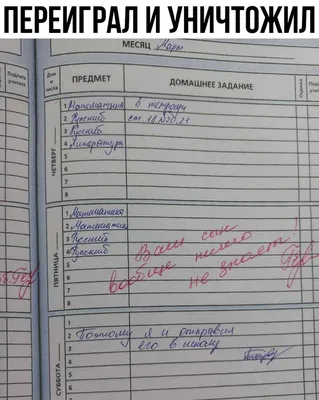 ПЕРЕИГРАЛ И УНИЧТОЖИЛ
МЕСЯЦ Март
Подпись учителя
Дни и числа
ПРЕДМЕТ
ДОМАШНЕЕ ЗАДАНИЕ
Оценка
Подпись
ЧЕТВЕРГ
1 Математика в тетради
2 Русский ст. 18 №20,21
3 Русский
4 Литература
5
6
7
8
ПЯТНИЦА
1 Математика
2 Математика
3 Русский
4 Русский
5
6
7
8
Ваш сын
вообще ничего
не знает!
СУББОТА
1
2 Поэтому я и отправил
3 его в школу
4
5
6
7
8